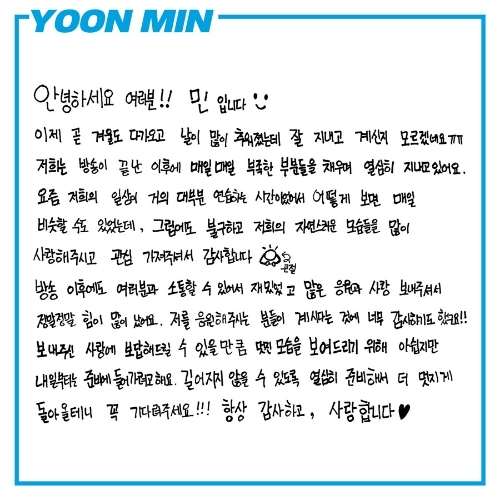 YOON MIN
안녕하세요 여러분!! 민 입니다 :)
이제 곧 겨울도 다가오고 날이 많이 추워졌는데 잘 지내고 계신지 모르겠네요ㅠㅠ
저희는 방송이 끝난 이후에 매일매일 부족한 부분들을 채우며 열심히 지내고있어요.
요즘 저희의 일상이 거의 대부분 연습하는 시간이었어서 어떻게 보면 매일
비슷할 수도 있었는데, 그럼에도 불구하고 저희의 자연스러운 모습들을 많이
사랑해주시고 관심 가져주셔서 감사합니다 꾸벅
방송 이후에도 여러분과 소통할 수 있어서 재밌었고 많은 응원과 사랑 보내주셔서
정말정말 힘이 많이 났어요. 저를 응원해주시는 분들이 계시다는 것에 너무 감사하기도 했구요!!
보내주신 사랑에 보답해드릴 수 있을만큼 멋진 모습을 보여드리기 위해 아쉽지만
내일부터는 준비에 들어가려고해요. 길어지지 않을 수 있도록 열심히 준비해서 더 멋지게
돌아올테니 꼭 기다려주세요!!! 항상 감사하고, 사랑합니다♥